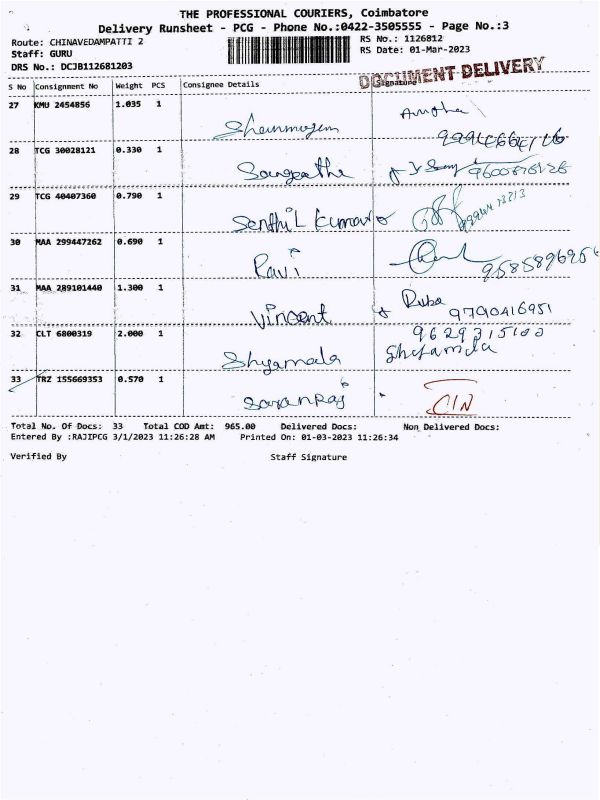 THE PROFESSIONAL COURIERS, Coimbatore
Delivery Runsheet - PCG - Phone No.:0422-3505555 - Page No.:3
Route: CHINAVEDAMPATTI 2
RS No.: 1126812
Staff: GURU
RS Date: 01-Mar-2023
DRS No.: DCJB112681203
DOCUMENT DELIVERY
S No Consignment No Weight PCS Consignee Details Signature
27 KMU 2454856 1.035 1
Shanmugam
28 TCG 30028121 0.330 1
Sangeetha
29 TCG 40407360 0.790 1
Senthil Kumar
30 MAA 299447262 0.690 1
Ravi
31 MAA 289101440 1.300 1 Ruba
Vincent 9790416951
32 CLT 6800319 2.000 1 9629315100
Shyamala
33 TRZ 155669353 0.570 1
Saranraj
Total No. Of Docs: 33 Total COD Amt: 965.00 Delivered Docs: Non Delivered Docs:
Entered By :RAJIPCG 3/1/2023 11:26:28 AM Printed On: 01-03-2023 11:26:34
Verified By Staff Signature